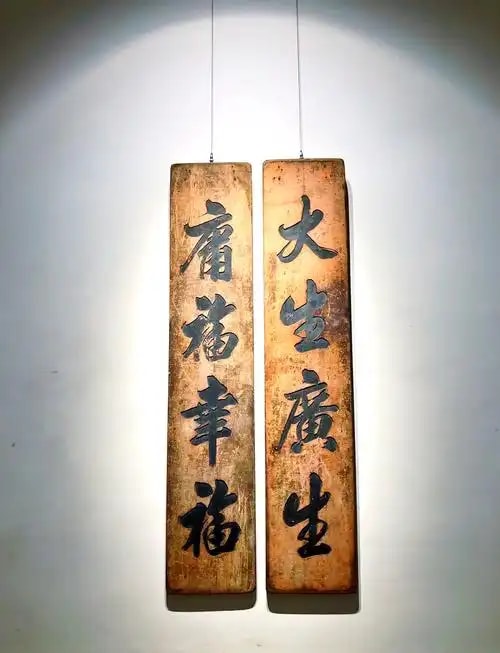 大生廣生
庸福幸福